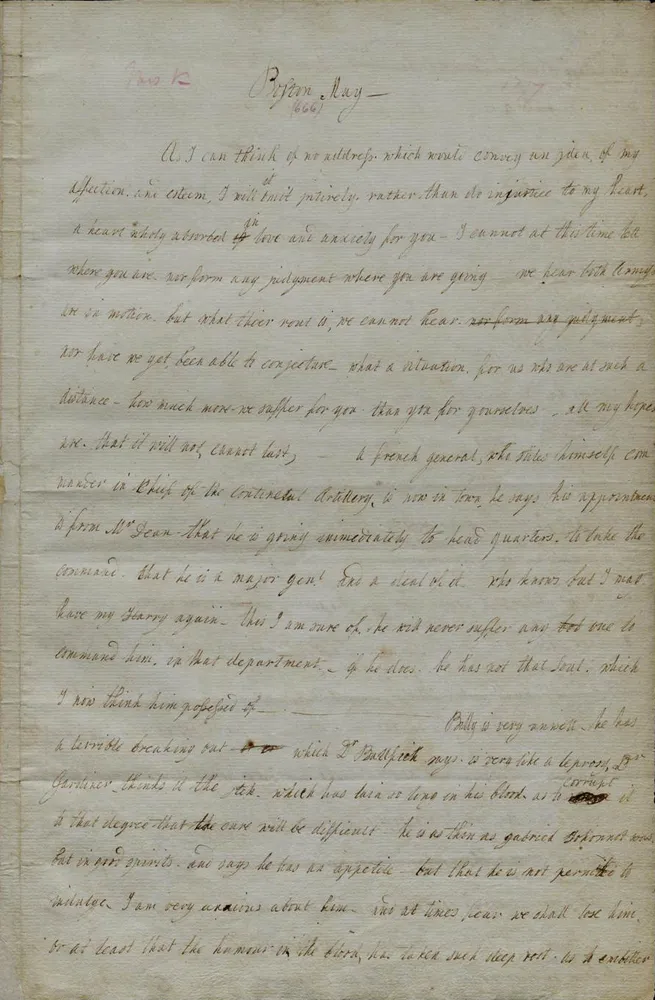 Boston May —
(666)
As I can think of no address which would convey an idea of my
affection and esteem, I will omit it intirely rather than do injustice to my heart,
a heart wholy absorbed in love and anxiety for you — I cannot at this time tell
where you are nor form any judgment where you are going we hear both Armys
are in motion but what thier rout is, we cannot hear nor form any judgment,
nor have we yet been able to conjecture — what a situation for us who are at such a
distance — how much more we suffer for you than you for yourselves — all my hopes
are that it will not, cannot last, — a french general, who stiles himself com
mander in Chief of the continetal Artillery, is now in town, he says his appointment
is from Mr Dean — that he is going immediately to head quarters to take the
command that he is a major genl and a deal of it who knows but I may
have my Harry again — this I am sure of, he will never suffer any bod one to
command him in that department — if he does he has not that soul which
I now think him possessed of — Billy is very unwell he has
a terrible breaking out which Dr Bullfich says is very like a leprosy, Dr
Gardiner thinks it the itch which has lain so long in his blood as to corrupt it
to that degree that the cure will be difficult he is as thin as gabriel Johonnot was
but in good spirits and says he has an appetite but that he is not permitted to
indulge. I am very anxious about him and at times fear we shall lose him
or at least that the humour in the blood has taken such deep root as to embitter